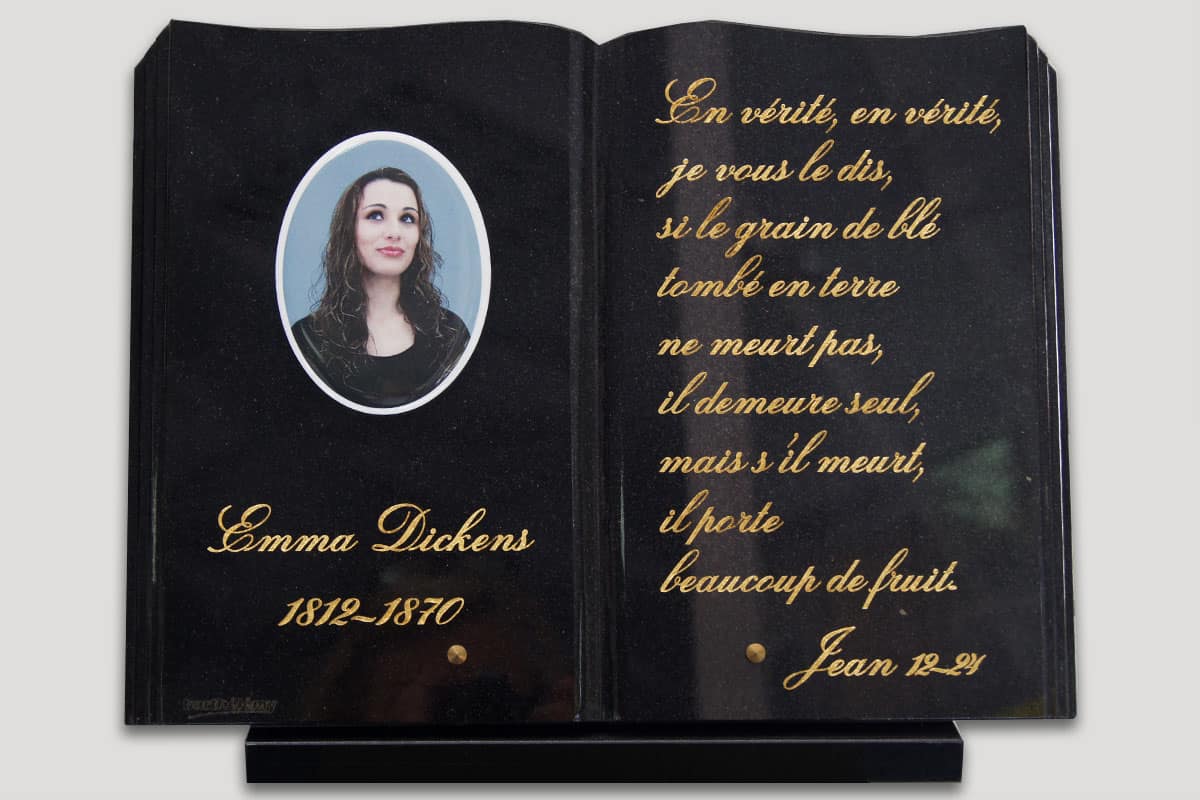 Emma Dickens
1812~1870
En vérité, en vérité,
je vous le dis,
si le grain de blé
tombé en terre
ne meurt pas,
il demeure seul,
mais s'il meurt,
il porte
beaucoup de fruit.
Jean 12~24